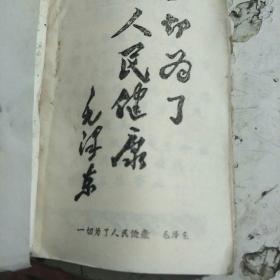 一切为了
人民健康
毛泽东
一切为了人民健康 毛泽东